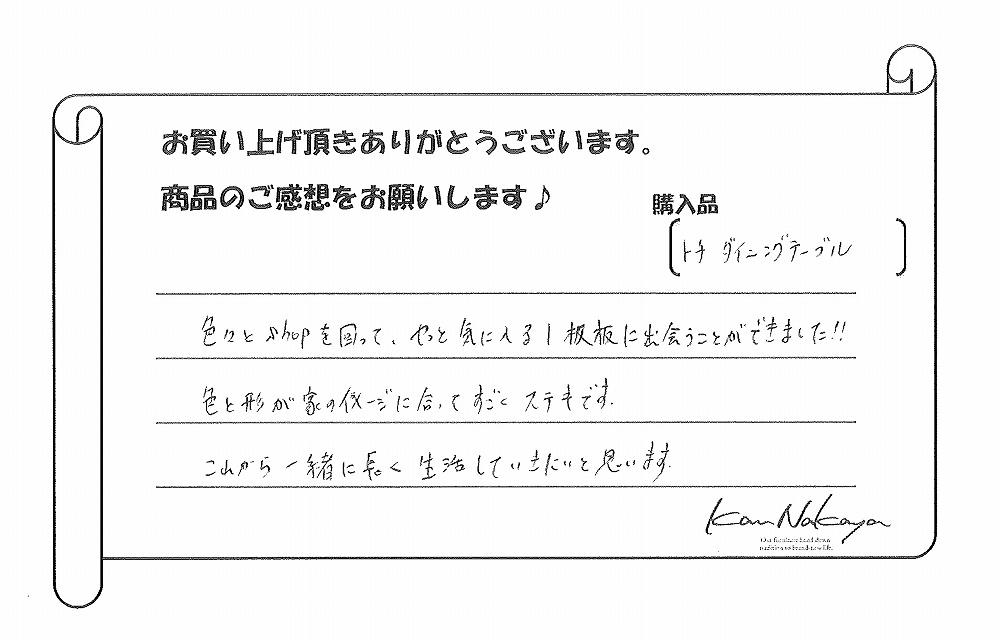 お買い上げ頂きありがとうございます。
商品のご感想をお願いします♪
購入品
トチ ダイニングテーブル
色々とshopを回って、やっと気に入る1枚板に出会うことができました!!
色と形が家のイメージに合ってすごくステキです.
これから一緒に長く生活していきたいと思います.
Kan Nakaya
Our furniture hand down
tradition to brand-new life.